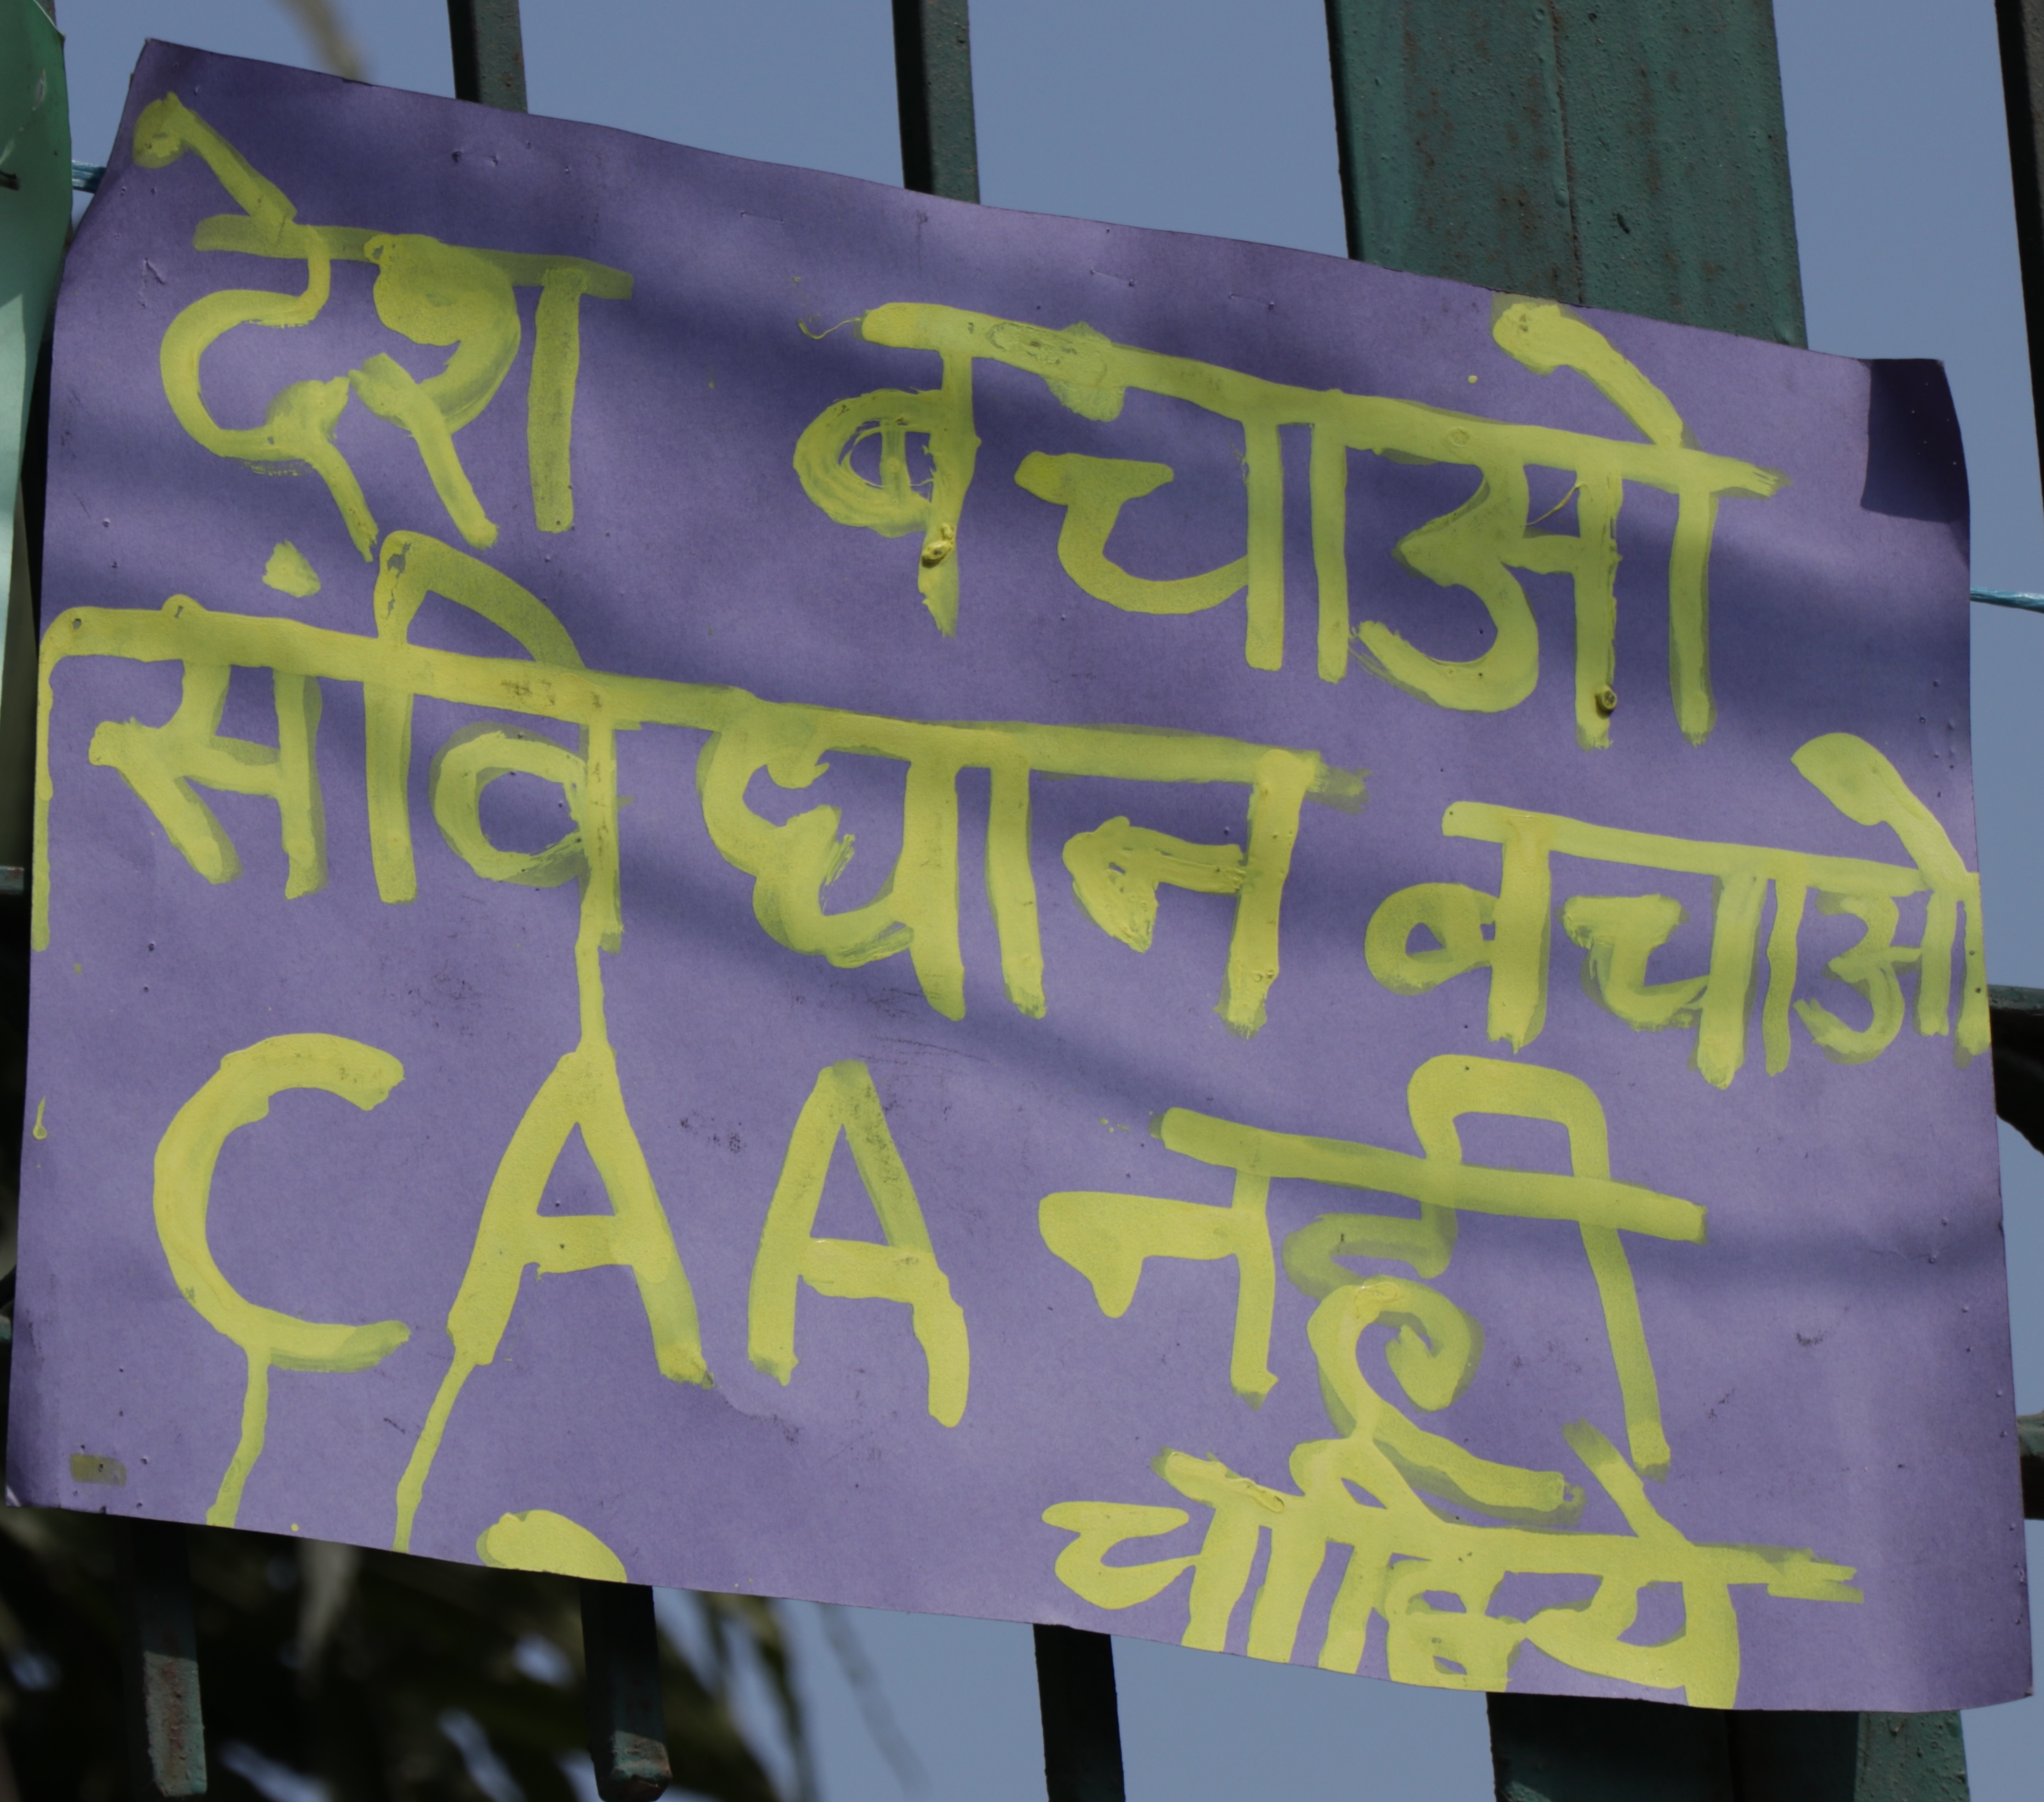 देश बचाओ
संविधान बचाओ
CAA नही
चाहिये